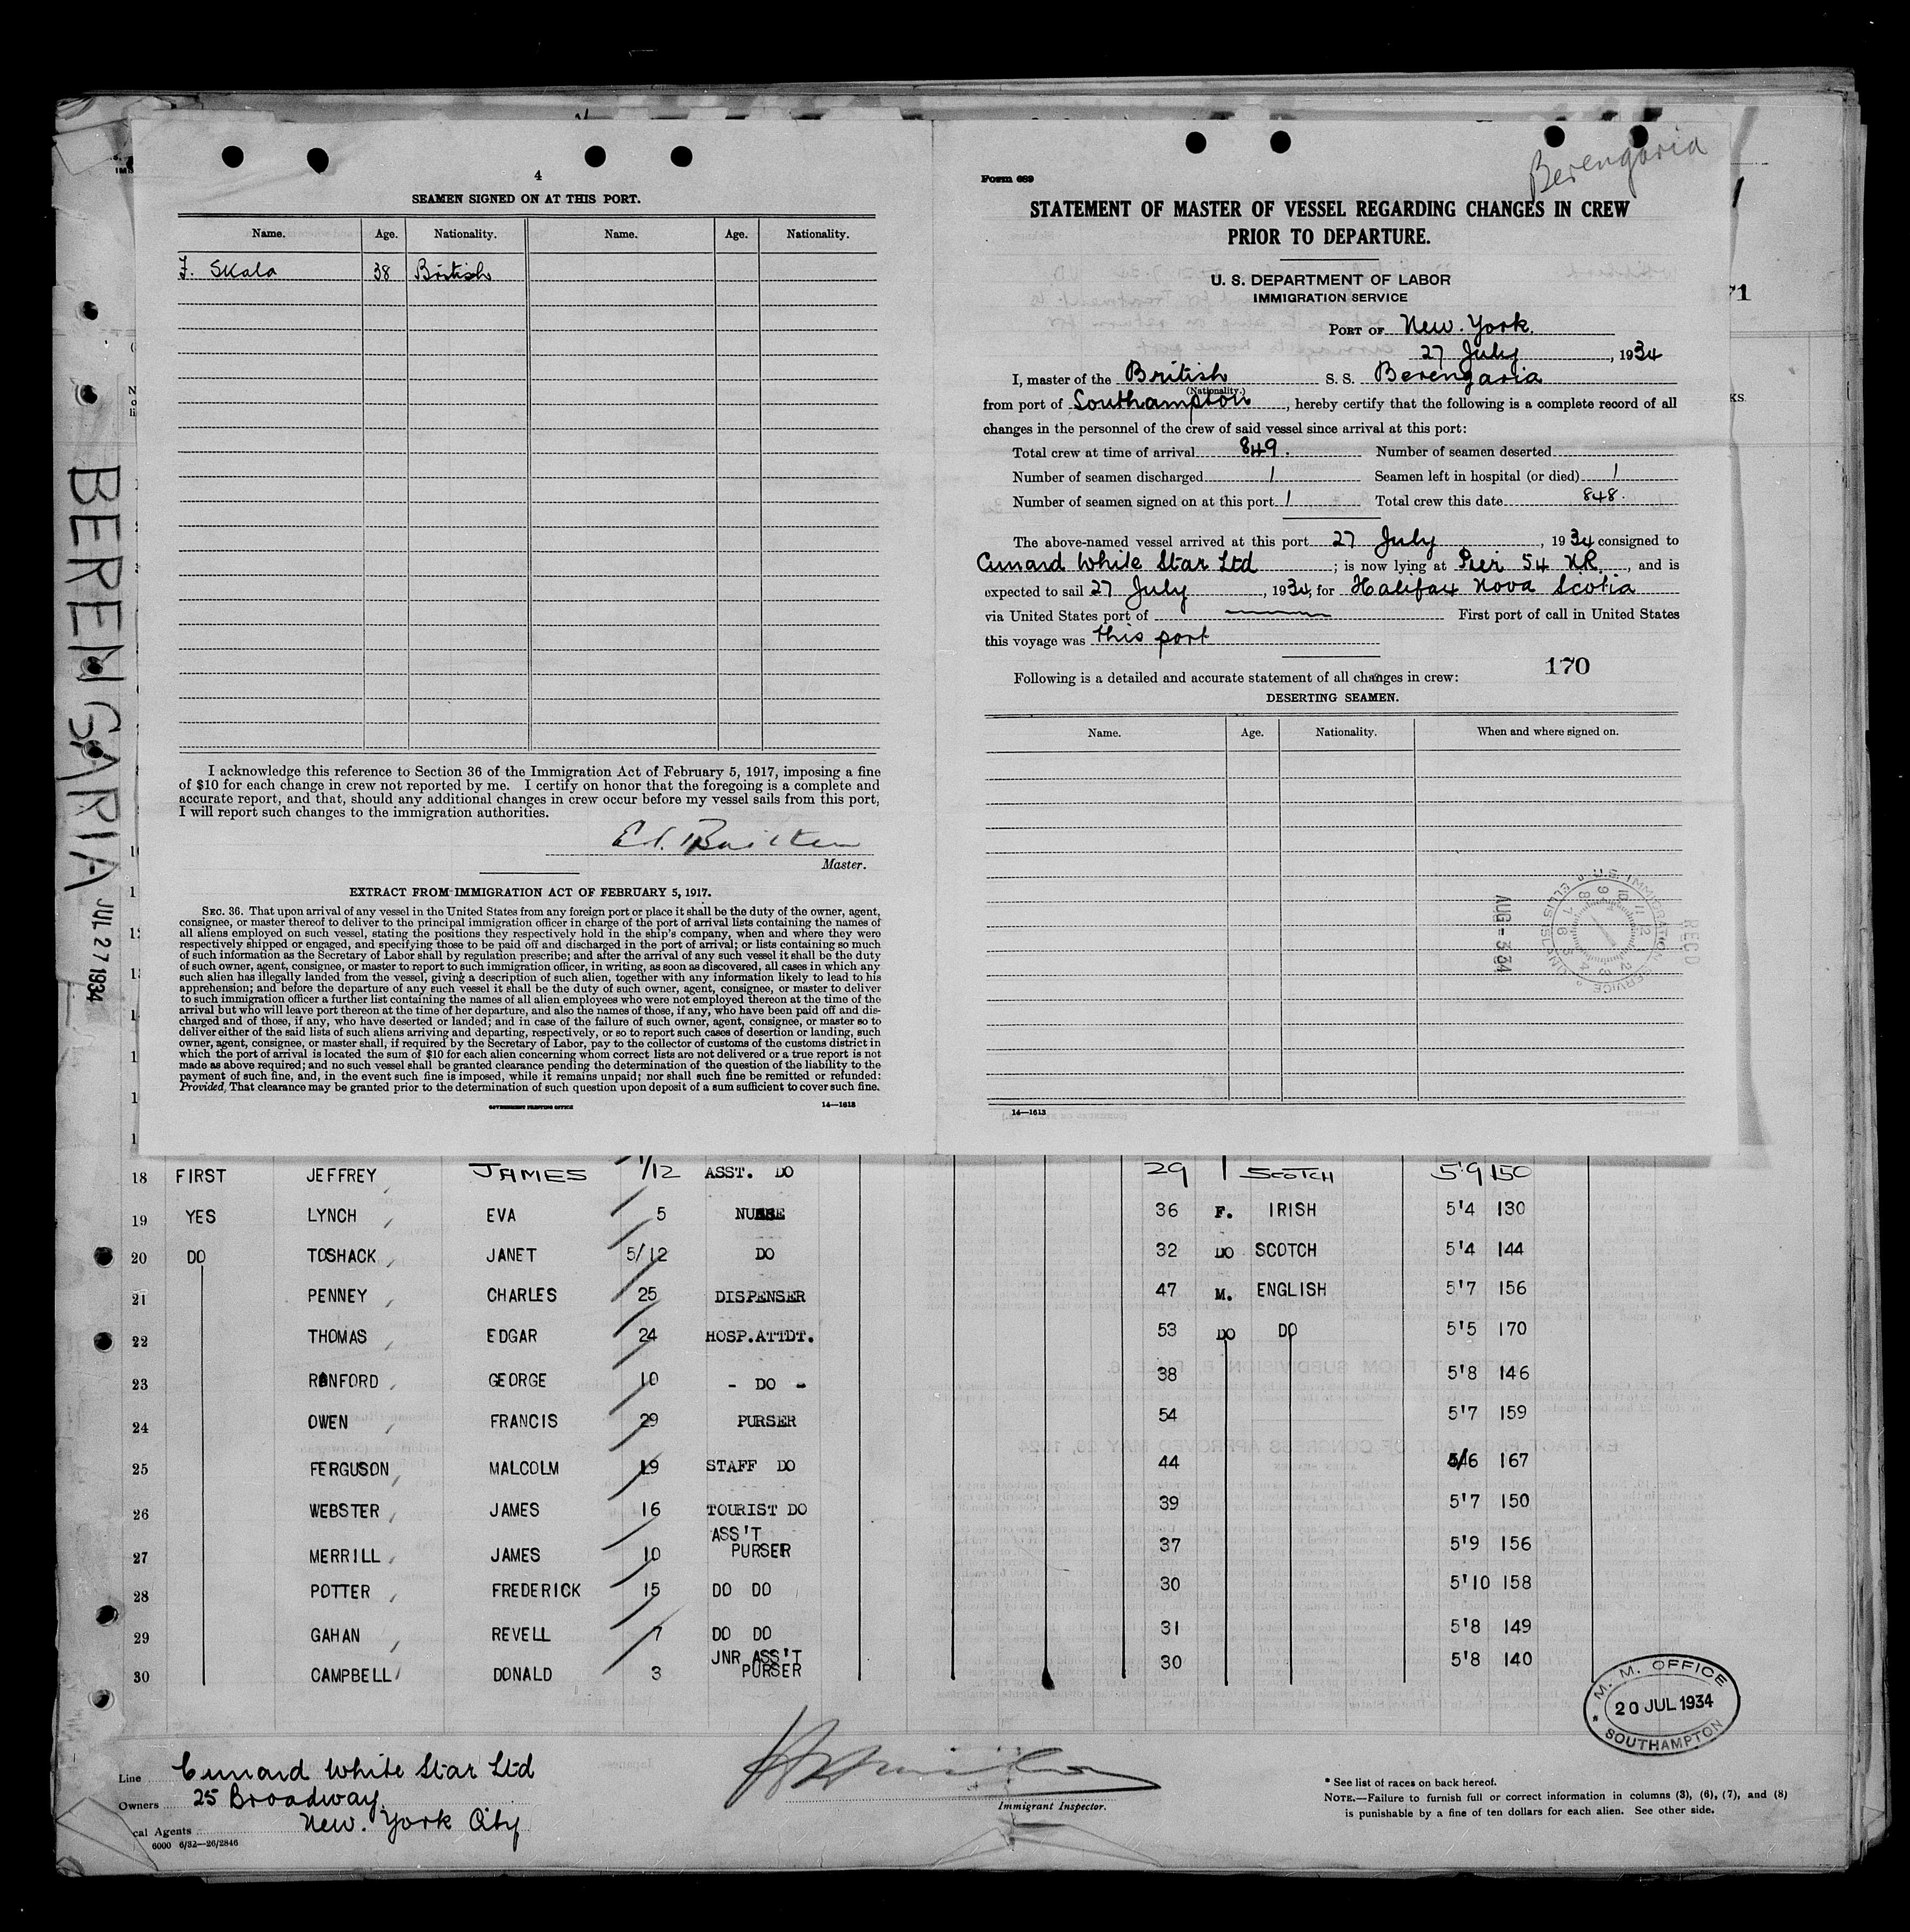 4
SEAMEN SIGNED ON AT THIS PORT.
Name. Age. Nationality. Name. Age. Nationality.
F. Skala 38 British
I acknowledge this reference to Section 36 of the Immigration Act of February 5, 1917, imposing a fine
of $10 for each change in crew not reported by me. I certify on honor that the foregoing is a complete and
accurate report, and that, should any additional changes in crew occur before my vessel sails from this port,
I will report such changes to the immigration authorities.
Master.
EXTRACT FROM IMMIGRATION ACT OF FEBRUARY 5, 1917.
SEC. 36. That upon arrival of any vessel in the United States from any foreign port or place it shall be the duty of the owner, agent,
consignee, or master thereof to deliver to the principal immigration officer in charge of the port of arrival lists containing the names of
all aliens employed on such vessel, stating the positions they respectively hold in the ship's company, when and where they were
respectively shipped or engaged, and specifying those to be paid off and discharged in the port of arrival; or lists containing so much
of such information as the Secretary of Labor shall by regulation prescribe; and after the arrival of any such vessel it shall be the duty
of such owner, agent, consignee, or master to report to such immigration officer, in writing, as soon as discovered, all cases in which any
such alien has illegally landed from the vessel, giving a description of such alien, together with any information likely to lead to his
apprehension; and before the departure of any such vessel it shall be the duty of such owner, agent, consignee, or master to deliver
to such immigration officer a further list containing the names of all alien employees who were not employed thereon at the time of the
arrival but who will leave port thereon at the time of her departure, and also the names of those, if any, who have been paid off and dis-
charged and of those, if any, who have deserted or landed; and in case of the failure of such owner, agent, consignee, or master so to
deliver either of the said lists of such aliens arriving and departing, respectively, or so to report such cases of desertion or landing, such
owner, agent, consignee, or master shall, if required by the Secretary of Labor, pay to the collector of customs of the customs district in
which the port of arrival is located the sum of $10 for each alien concerning whom correct lists are not delivered or a true report is not
made as above required; and no such vessel shall be granted clearance pending the determination of the question of the liability to the
payment of such fine, and, in the event such fine is imposed, while it remains unpaid; nor shall such fine be remitted or refunded:
Provided, That clearance may be granted prior to the determination of such question upon deposit of a sum sufficient to cover such fine.
GOVERNMENT PRINTING OFFICE 14—1613
Berengaria
Form 689
STATEMENT OF MASTER OF VESSEL REGARDING CHANGES IN CREW
PRIOR TO DEPARTURE.
U. S. DEPARTMENT OF LABOR
IMMIGRATION SERVICE
PORT OF New York.
27 July, 1934
I, master of the British S. S. Berengaria
(Nationality.)
from port of Southampton, hereby certify that the following is a complete record of all
changes in the personnel of the crew of said vessel since arrival at this port:
Total crew at time of arrival 849. Number of seamen deserted
Number of seamen discharged 1 Seamen left in hospital (or died) 1
Number of seamen signed on at this port 1 Total crew this date 848.
The above-named vessel arrived at this port 27 July, 1934 consigned to
Cunard White Star Ltd; is now lying at Pier 54 NR, and is
expected to sail 27 July, 1934, for Halifax Nova Scotia
via United States port of First port of call in United States
this voyage was this port
170
Following is a detailed and accurate statement of all changes in crew:
DESERTING SEAMEN.
Name. Age. Nationality. When and where signed on.
U.S. IMMIGRATION SERVICE ELLIS ISLAND
REC'D
AUG - 3 '34
14—1613
71
KS
BERENGARIA JUL 27 1934
18 FIRST JEFFREY, JAMES 1/12 ASST. DO 29 SCOTCH 5'9 150
19 YES LYNCH, EVA 5 NURSE 36 F. IRISH 5'4 130
20 DO TOSHACK, JANET 5/12 DO 32 DO SCOTCH 5'4 144
21 PENNEY, CHARLES 25 DISPENSER 47 M. ENGLISH 5'7 156
22 THOMAS, EDGAR 24 HOSP.ATTDT. 53 DO DO 5'5 170
23 RANFORD, GEORGE 10 - DO - 38 5'8 146
24 OWEN, FRANCIS 29 PURSER 54 5'7 159
25 FERGUSON, MALCOLM 19 STAFF DO 44 5/6 167
26 WEBSTER, JAMES 16 TOURIST DO 39 5'7 150
27 MERRILL, JAMES 10 ASS'T PURSER 37 5'9 156
28 POTTER, FREDERICK 15 DO DO 30 5'10 158
29 GAHAN, REVELL 7 DO DO 31 5'8 149
30 CAMPBELL, DONALD 3 JNR ASS'T PURSER 30 5'8 140
M. M. OFFICE
20 JUL 1934
* SOUTHAMPTON
Line Cunard White Star Ltd
Owners 25 Broadway
cal Agents New York City
6000 6/32—26/2846
Immigrant Inspector.
* See list of races on back hereof.
NOTE.—Failure to furnish full or correct information in columns (3), (6), (7), and (8)
is punishable by a fine of ten dollars for each alien. See other side.